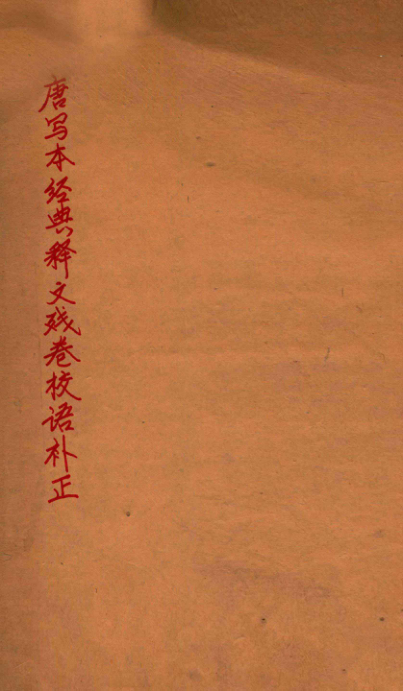 唐写本经典释文残卷校语补正